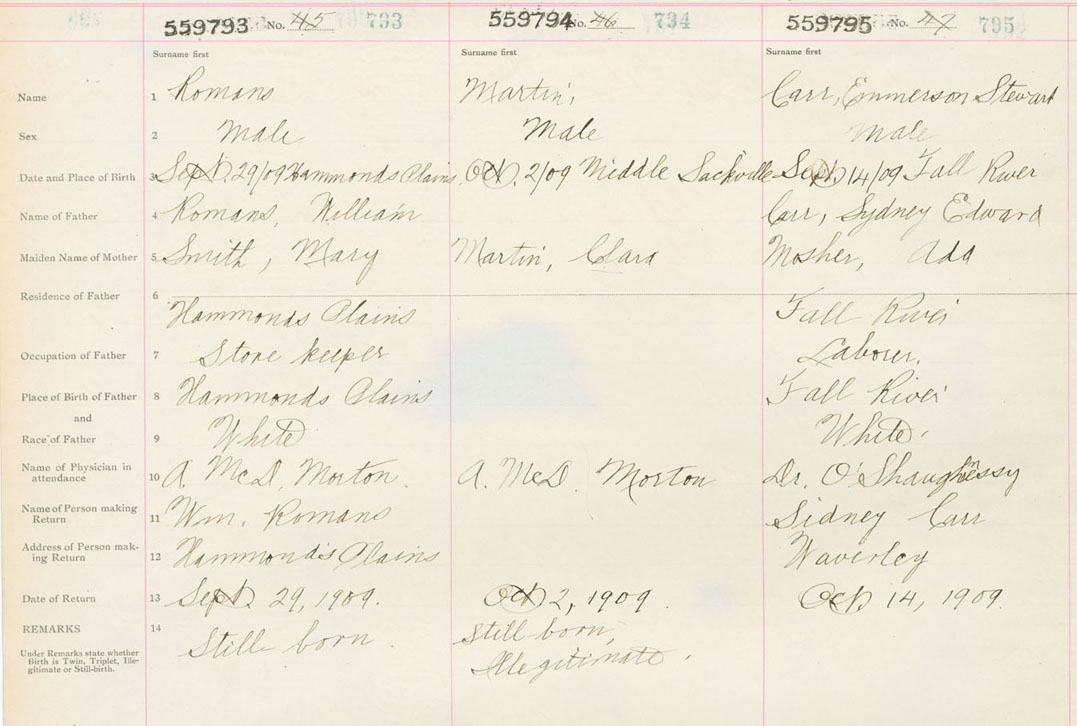 559793 No. 45 733 559794 No. 46 734 559795 No. 47 795
Surname first Surname first Surname first
Name 1 Romans Martin, Carr, Emmerson Stewart
Sex 2 Male Male Male
Date and Place of Birth 3 Sept. 29/09 Hammonds Plains Oct. 2/09 Middle Sackville Sept. 14/09 Fall River
Name of Father 4 Romans, William Carr, Sydney Edward
Maiden Name of Mother 5 Smith, Mary Martin, Clara Mosher, Ada
Residence of Father 6 Hammonds Plains Fall River
Occupation of Father 7 Store keeper Labour.
Place of Birth of Father 8 Hammonds Plains Fall River
and
Race of Father 9 White White.
Name of Physician in
attendance 10 A. McD. Morton. A. McD. Morton Dr. O'Shaughnessy
Name of Person making
Return 11 Wm. Romans Sidney Carr
Address of Person mak-
ing Return 12 Hammonds Plains Waverley
Date of Return 13 Sept. 29, 1909. Oct 2, 1909. Oct 14, 1909.
REMARKS 14 Still born Still born,
Under Remarks state whether
Birth is Twin, Triplet, Ille-
gitimate or Still-birth.
Illegitimate.